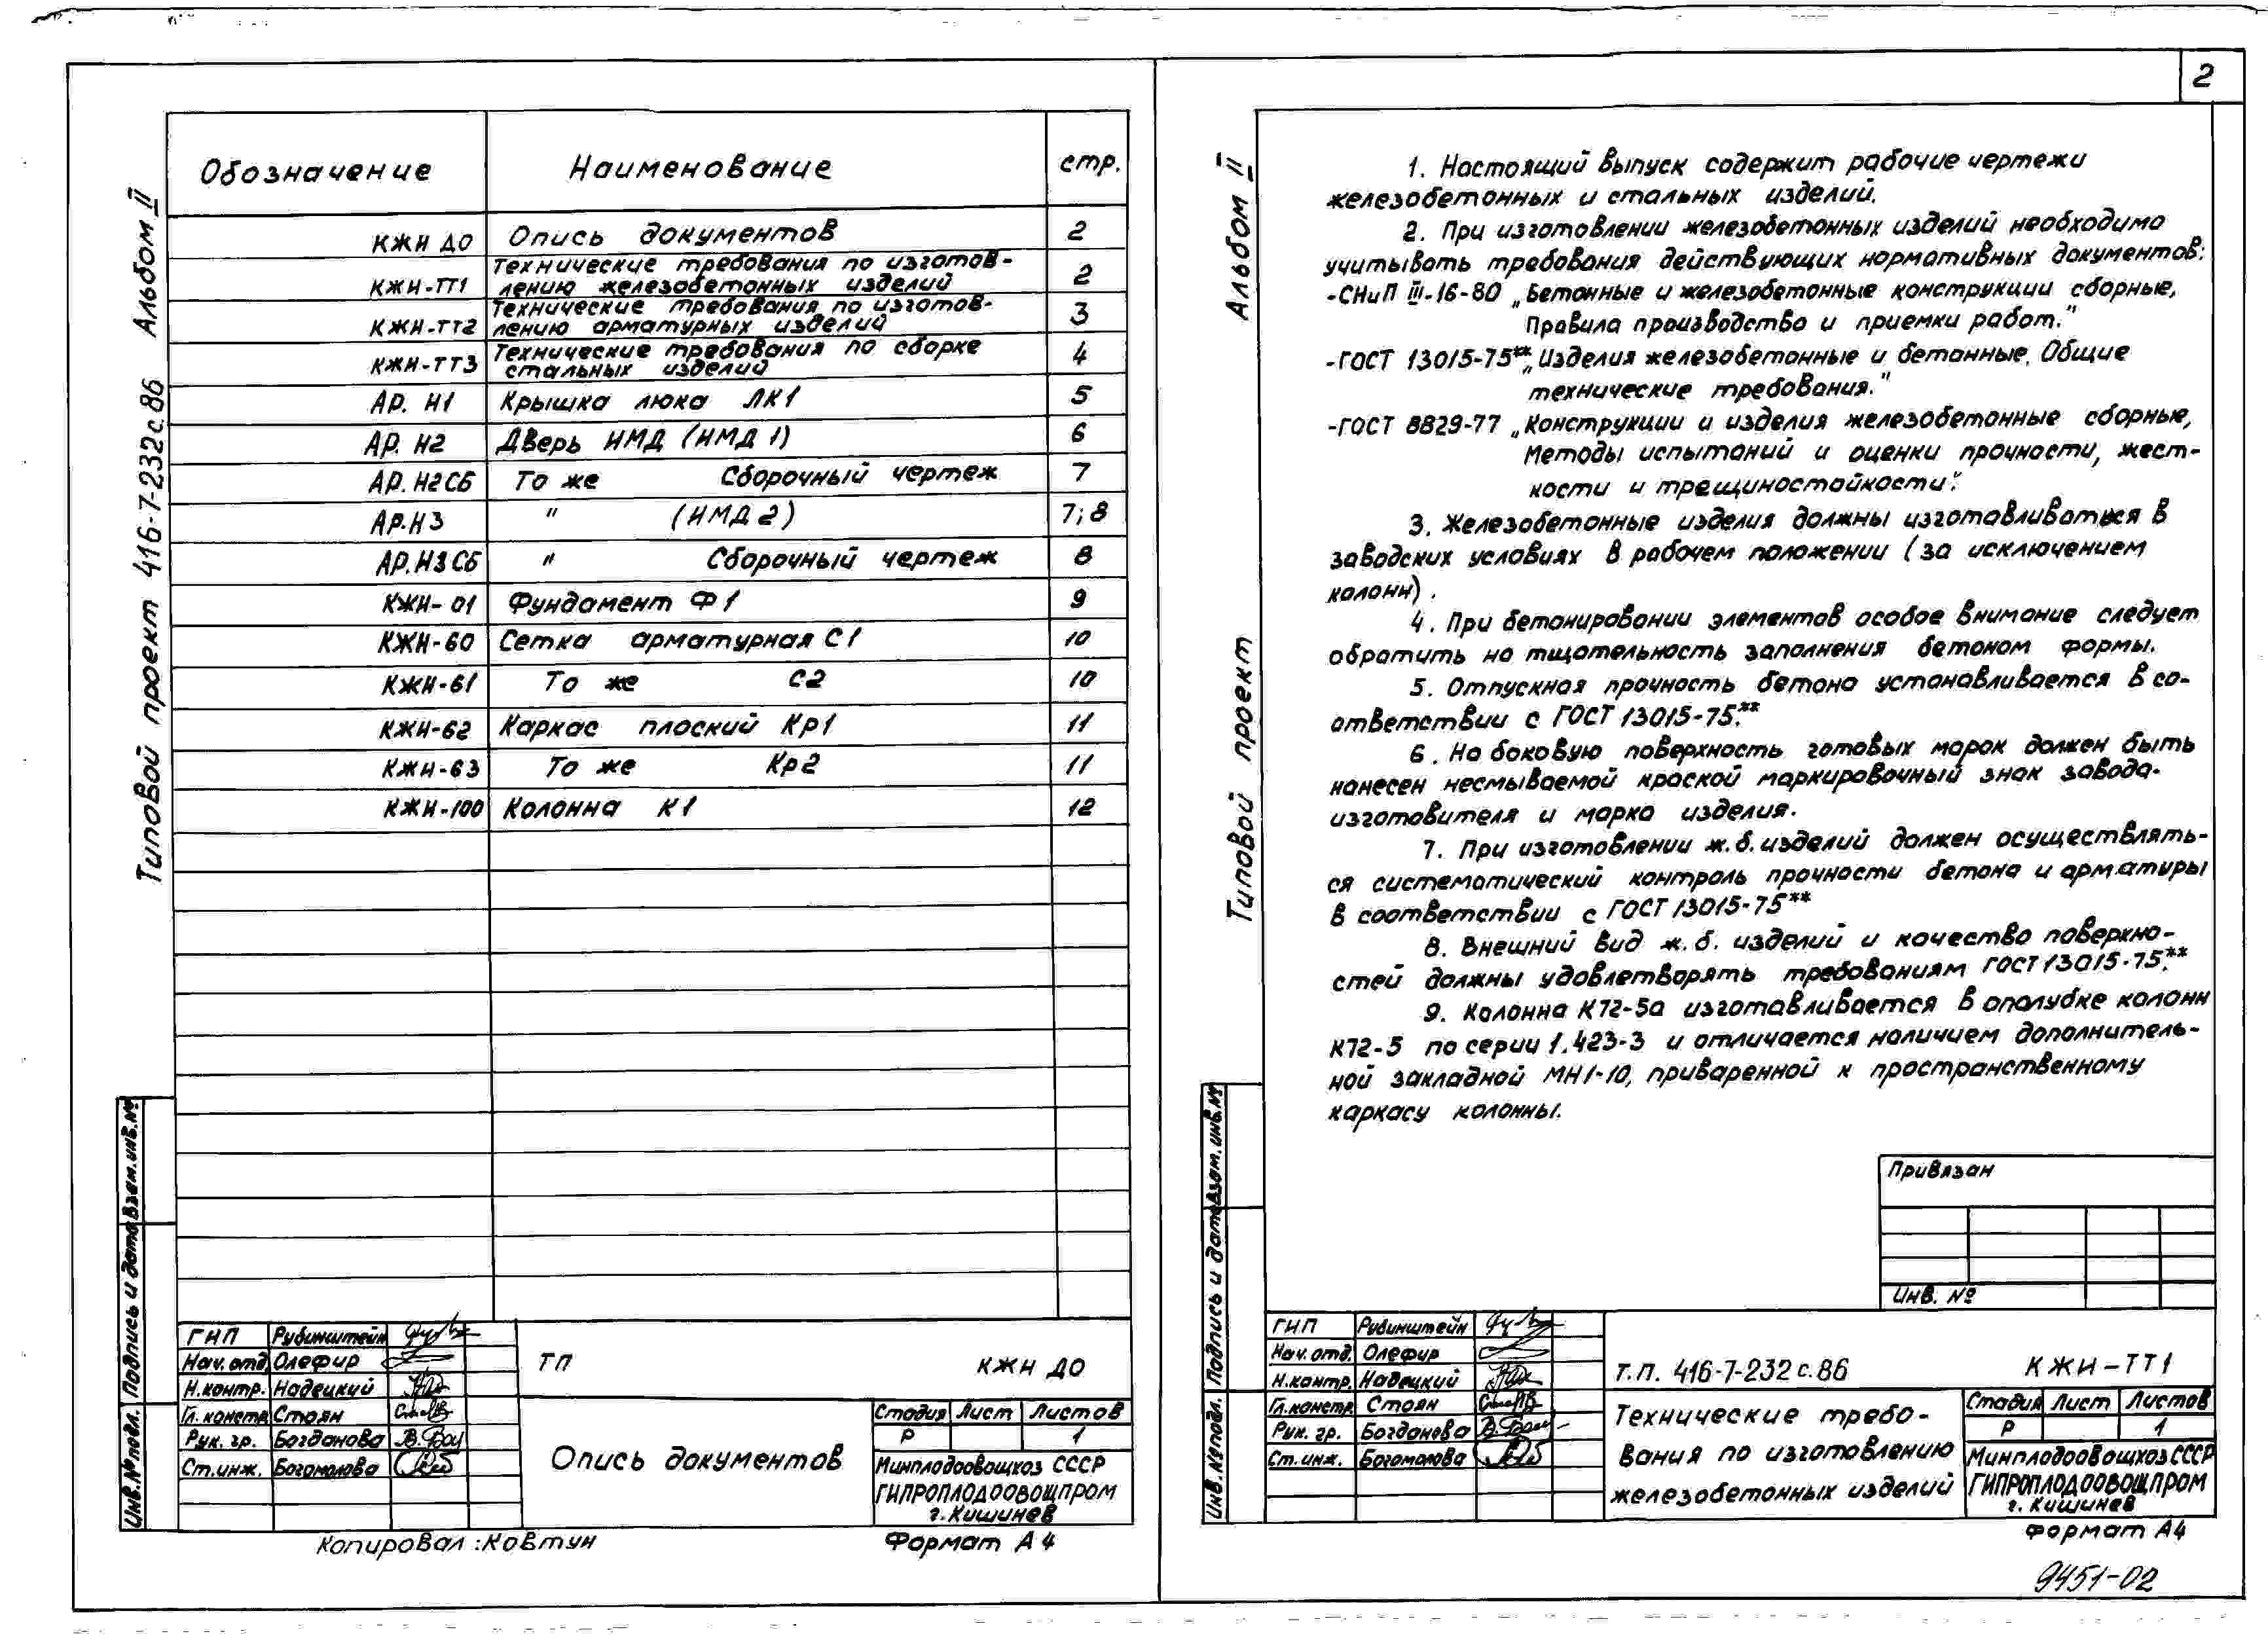 2
Типовой проект 416-7-232с.86 Альбом II
Обозначение Наименование стр.
КЖИ ДО Опись документов 2
КЖИ-ТТ1 Технические требования по изготов-
лению железобетонных изделий 2
КЖИ-ТТ2 Технические требования по изготов-
лению арматурных изделий 3
КЖИ-ТТ3 Технические требования по сборке
стальных изделий 4
АР. И1 Крышка люка ЛК1 5
АР. И2 Дверь ИМД (ИМД 1) 6
АР. И2СБ То же Сборочный чертеж 7
АР.И3 " (ИМД 2) 7;8
АР.И3 СБ " Сборочный чертеж 8
КЖИ-01 Фундамент Ф1 9
КЖИ-60 Сетка арматурная С1 10
КЖИ-61 То же С2 10
КЖИ-62 Каркас плоский Кр1 11
КЖИ-63 То же Кр2 11
КЖИ-100 Колонна К1 12
Инв.№подл. Подпись и дата Взам.инв.№
ГИП Рубинштейн
Нач.отд. Олефир
Н.контр. Надецкий
Гл. констр. Стоян
Рук. гр. Богданова
Ст.инж. Богомолова
ТП КЖИ ДО
Опись документов
Стадия Лист Листов
Р 1
Минплодоовощхоз СССР
ГИПРОПЛОДООВОЩПРОМ
г.Кишинев
Копировал: Ковтун Формат А4
Типовой проект Альбом II
1. Настоящий выпуск содержит рабочие чертежи
железобетонных и стальных изделий.
2. При изготовлении железобетонных изделий необходимо
учитывать требования действующих нормативных документов:
-СНиП III-16-80 „Бетонные и железобетонные конструкции сборные,
Правила производства и приемки работ."
-ГОСТ 13015-75** „Изделия железобетонные и бетонные. Общие
технические требования."
-ГОСТ 8829-77 „Конструкции и изделия железобетонные сборные,
Методы испытаний и оценки прочности, жест-
кости и трещиностойкости".
3. Железобетонные изделия должны изготавливаться в
заводских условиях в рабочем положении (за исключением
колонн).
4. При бетонировании элементов особое внимание следует
обратить на тщательность заполнения бетоном формы.
5. Отпускная прочность бетона устанавливается в со-
ответствии с ГОСТ 13015-75**.
6. На боковую поверхность готовых марок должен быть
нанесен несмываемой краской маркировочный знак завода-
изготовителя и марка изделия.
7. При изготовлении ж.б. изделий должен осуществлять-
ся систематический контроль прочности бетона и арматуры
в соответствии с ГОСТ 13015-75**
8. Внешний вид ж.б. изделий и качество поверхно-
стей должны удовлетворять требованиям ГОСТ 13015-75**.
9. Колонна К72-5а изготавливается в опалубке колонн
К72-5 по серии 1.423-3 и отличается наличием дополнитель-
ной закладной МН1-10, приваренной к пространственному
каркасу колонны.
Привязан
Инв. №
Инв.№подл. Подпись и дата Взам.инв.№
ГИП Рубинштейн
Нач.отд. Олефир
Н.контр. Надецкий
Гл.констр. Стоян
Рук. гр. Богданова
Ст.инж. Богомолова
т.п. 416-7-232 с.86 КЖИ-ТТ1
Технические требо-
вания по изготовлению
железобетонных изделий
Стадия Лист Листов
Р 1
Минплодоовощхоз СССР
ГИПРОПЛОДООВОЩПРОМ
г. Кишинев
Формат А4
9451-02